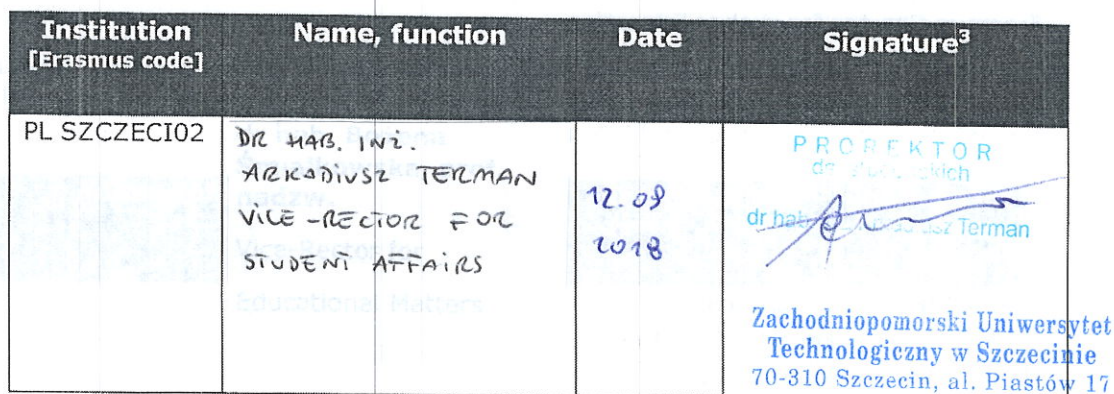 Institution
[Erasmus code]
Name, function
Date
Signature³
PL SZCZECI02
DR HAB. INŻ.
ARKADIUSZ TERMAN
VICE-RECTOR FOR
STUDENT AFFAIRS
12.09
2018
PROREKTOR
dr hab.
Terman
Zachodniopomorski Uniwersytet
Technologiczny w Szczecinie
70-310 Szczecin, al. Piastów 17